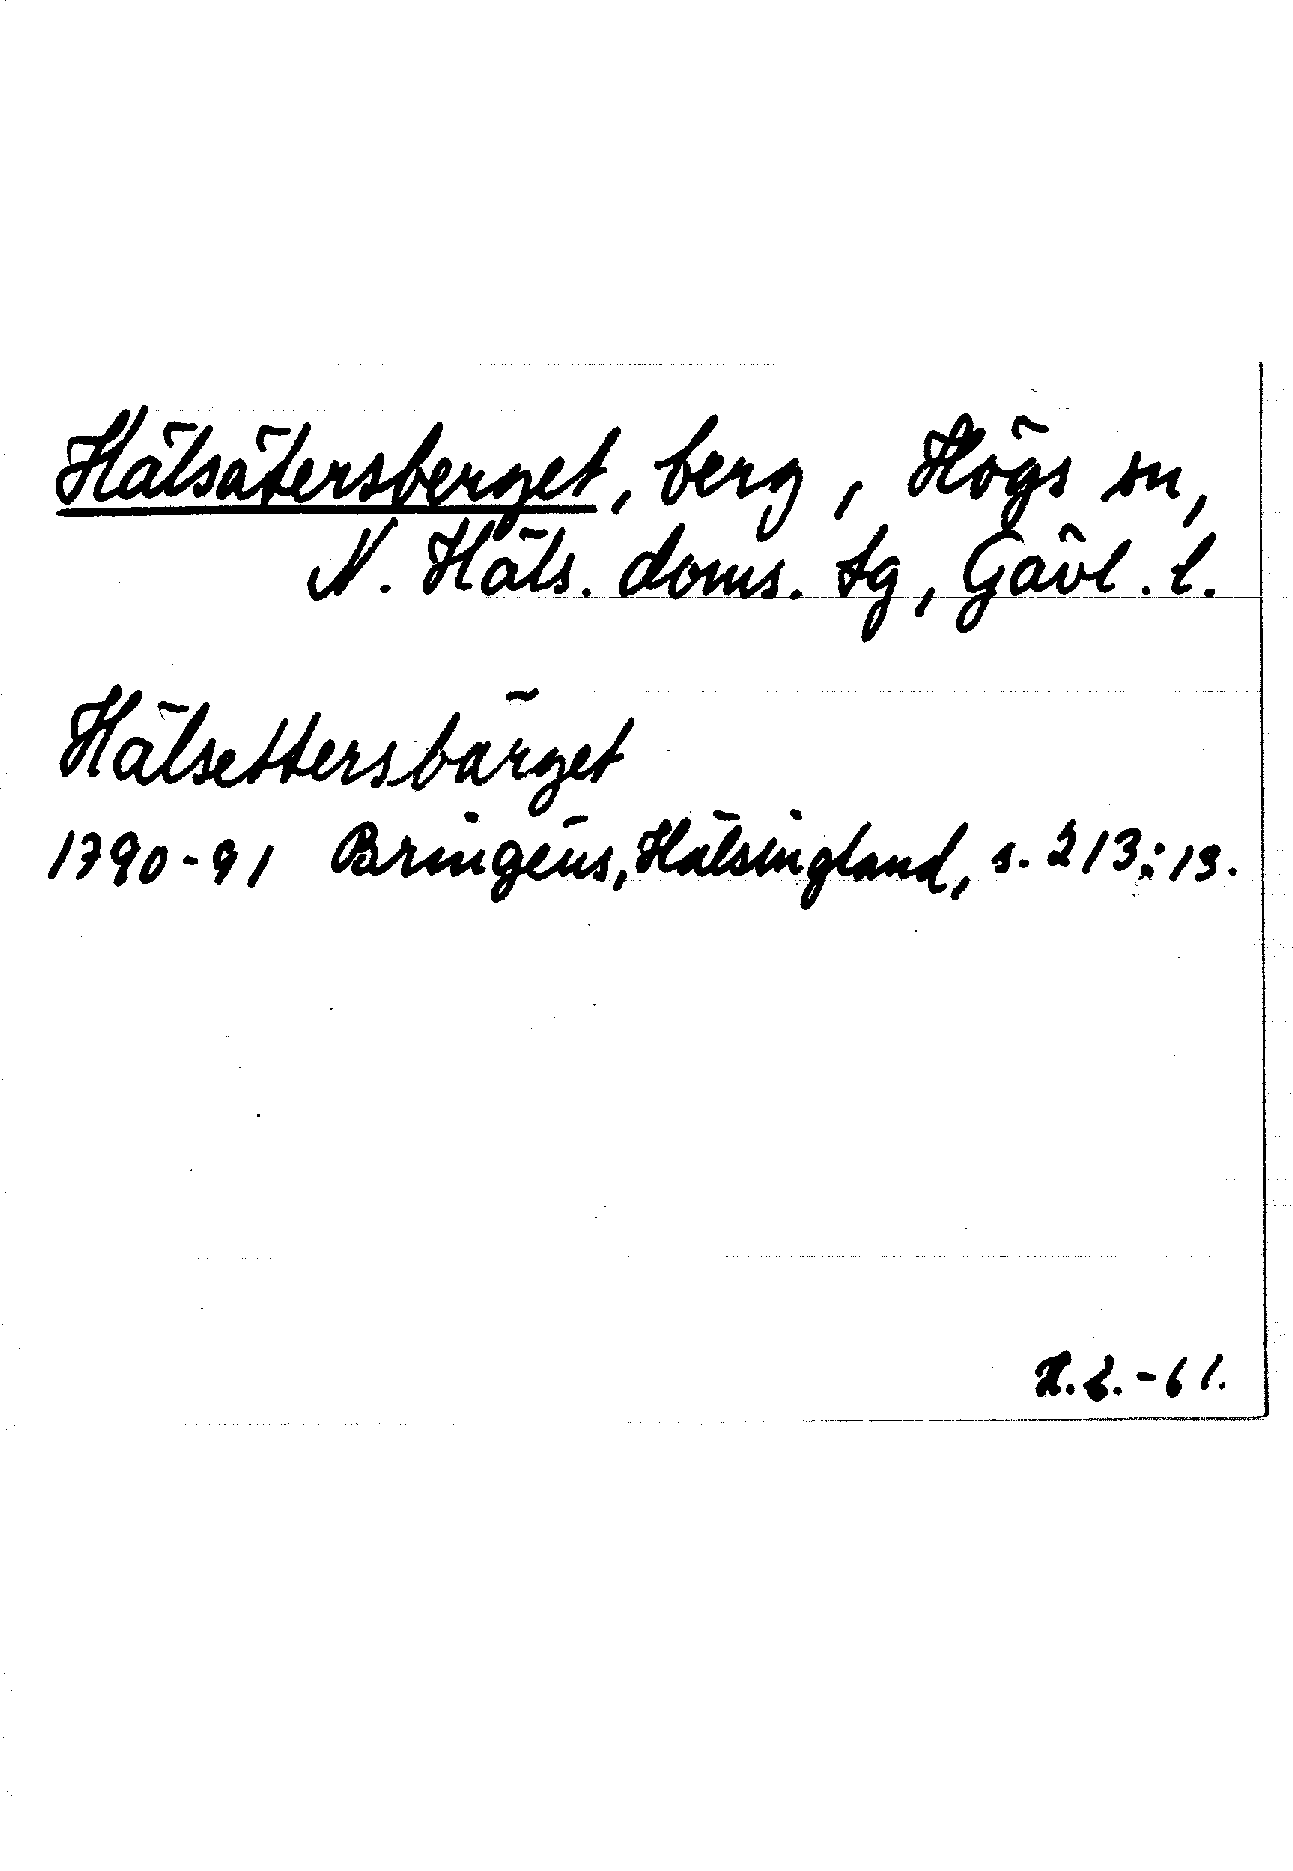 Hälsätersberget, berg, Högs sn,
N. Häls. doms. tg, Gävl. l.
Hälsettersbärget
1790-91 Bringéus, Hälsingland, s. 213:13.
H.L.-61.